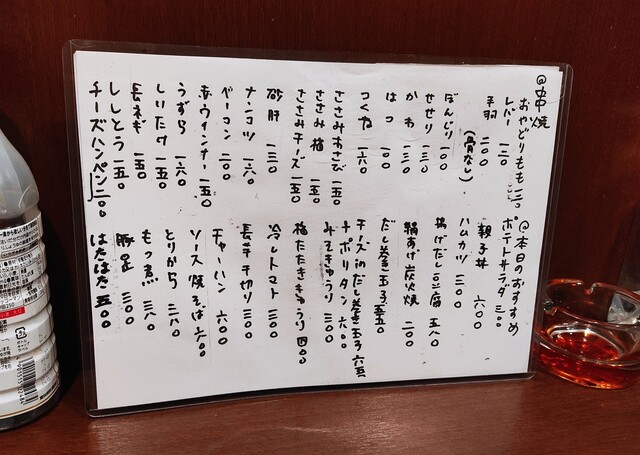 @串焼
おやどりもも 二二〇
レバー 一二〇
手羽 二〇〇
(骨なし)
ぼんじり 一〇〇
せせり 一三〇
かわ 一三〇
はつ 一〇〇
つくね 一六〇
ささみわさび 一五〇
ささみ梅 一五〇
ささみチーズ 一五〇
砂肝 一三〇
ナンコツ 一六〇
ベーコン 二〇〇
赤ウインナー 一五〇
うずら 一六〇
しいたけ 一五〇
長ネギ 一五〇
ししとう 一五〇
チーズハンペン 二一〇
@本日のおすすめ
ポテトサラダ 三〇〇
親子丼 六〇〇
ハムカツ 三〇〇
揚げだし豆腐 五八〇
絹あげ炭火焼 二〇〇
だし巻き玉子 五五〇
チーズinだし巻き玉子 六五〇
ナポリタン 六〇〇
みそきゅうり 三〇〇
梅たたききゅうり 四〇〇
冷しトマト 三〇〇
長芋千切り 三〇〇
チャーハン 六〇〇
ソース焼そば 六〇〇
とりから 三八〇
もつ煮 三八〇
豚足 三〇〇
はたはた 五〇〇